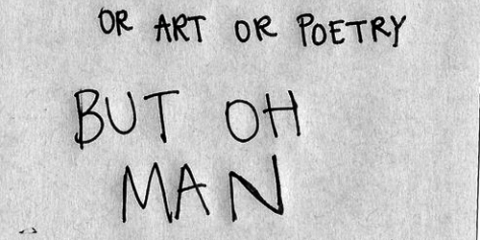 OR ART OR POETRY
BUT OH
MAN